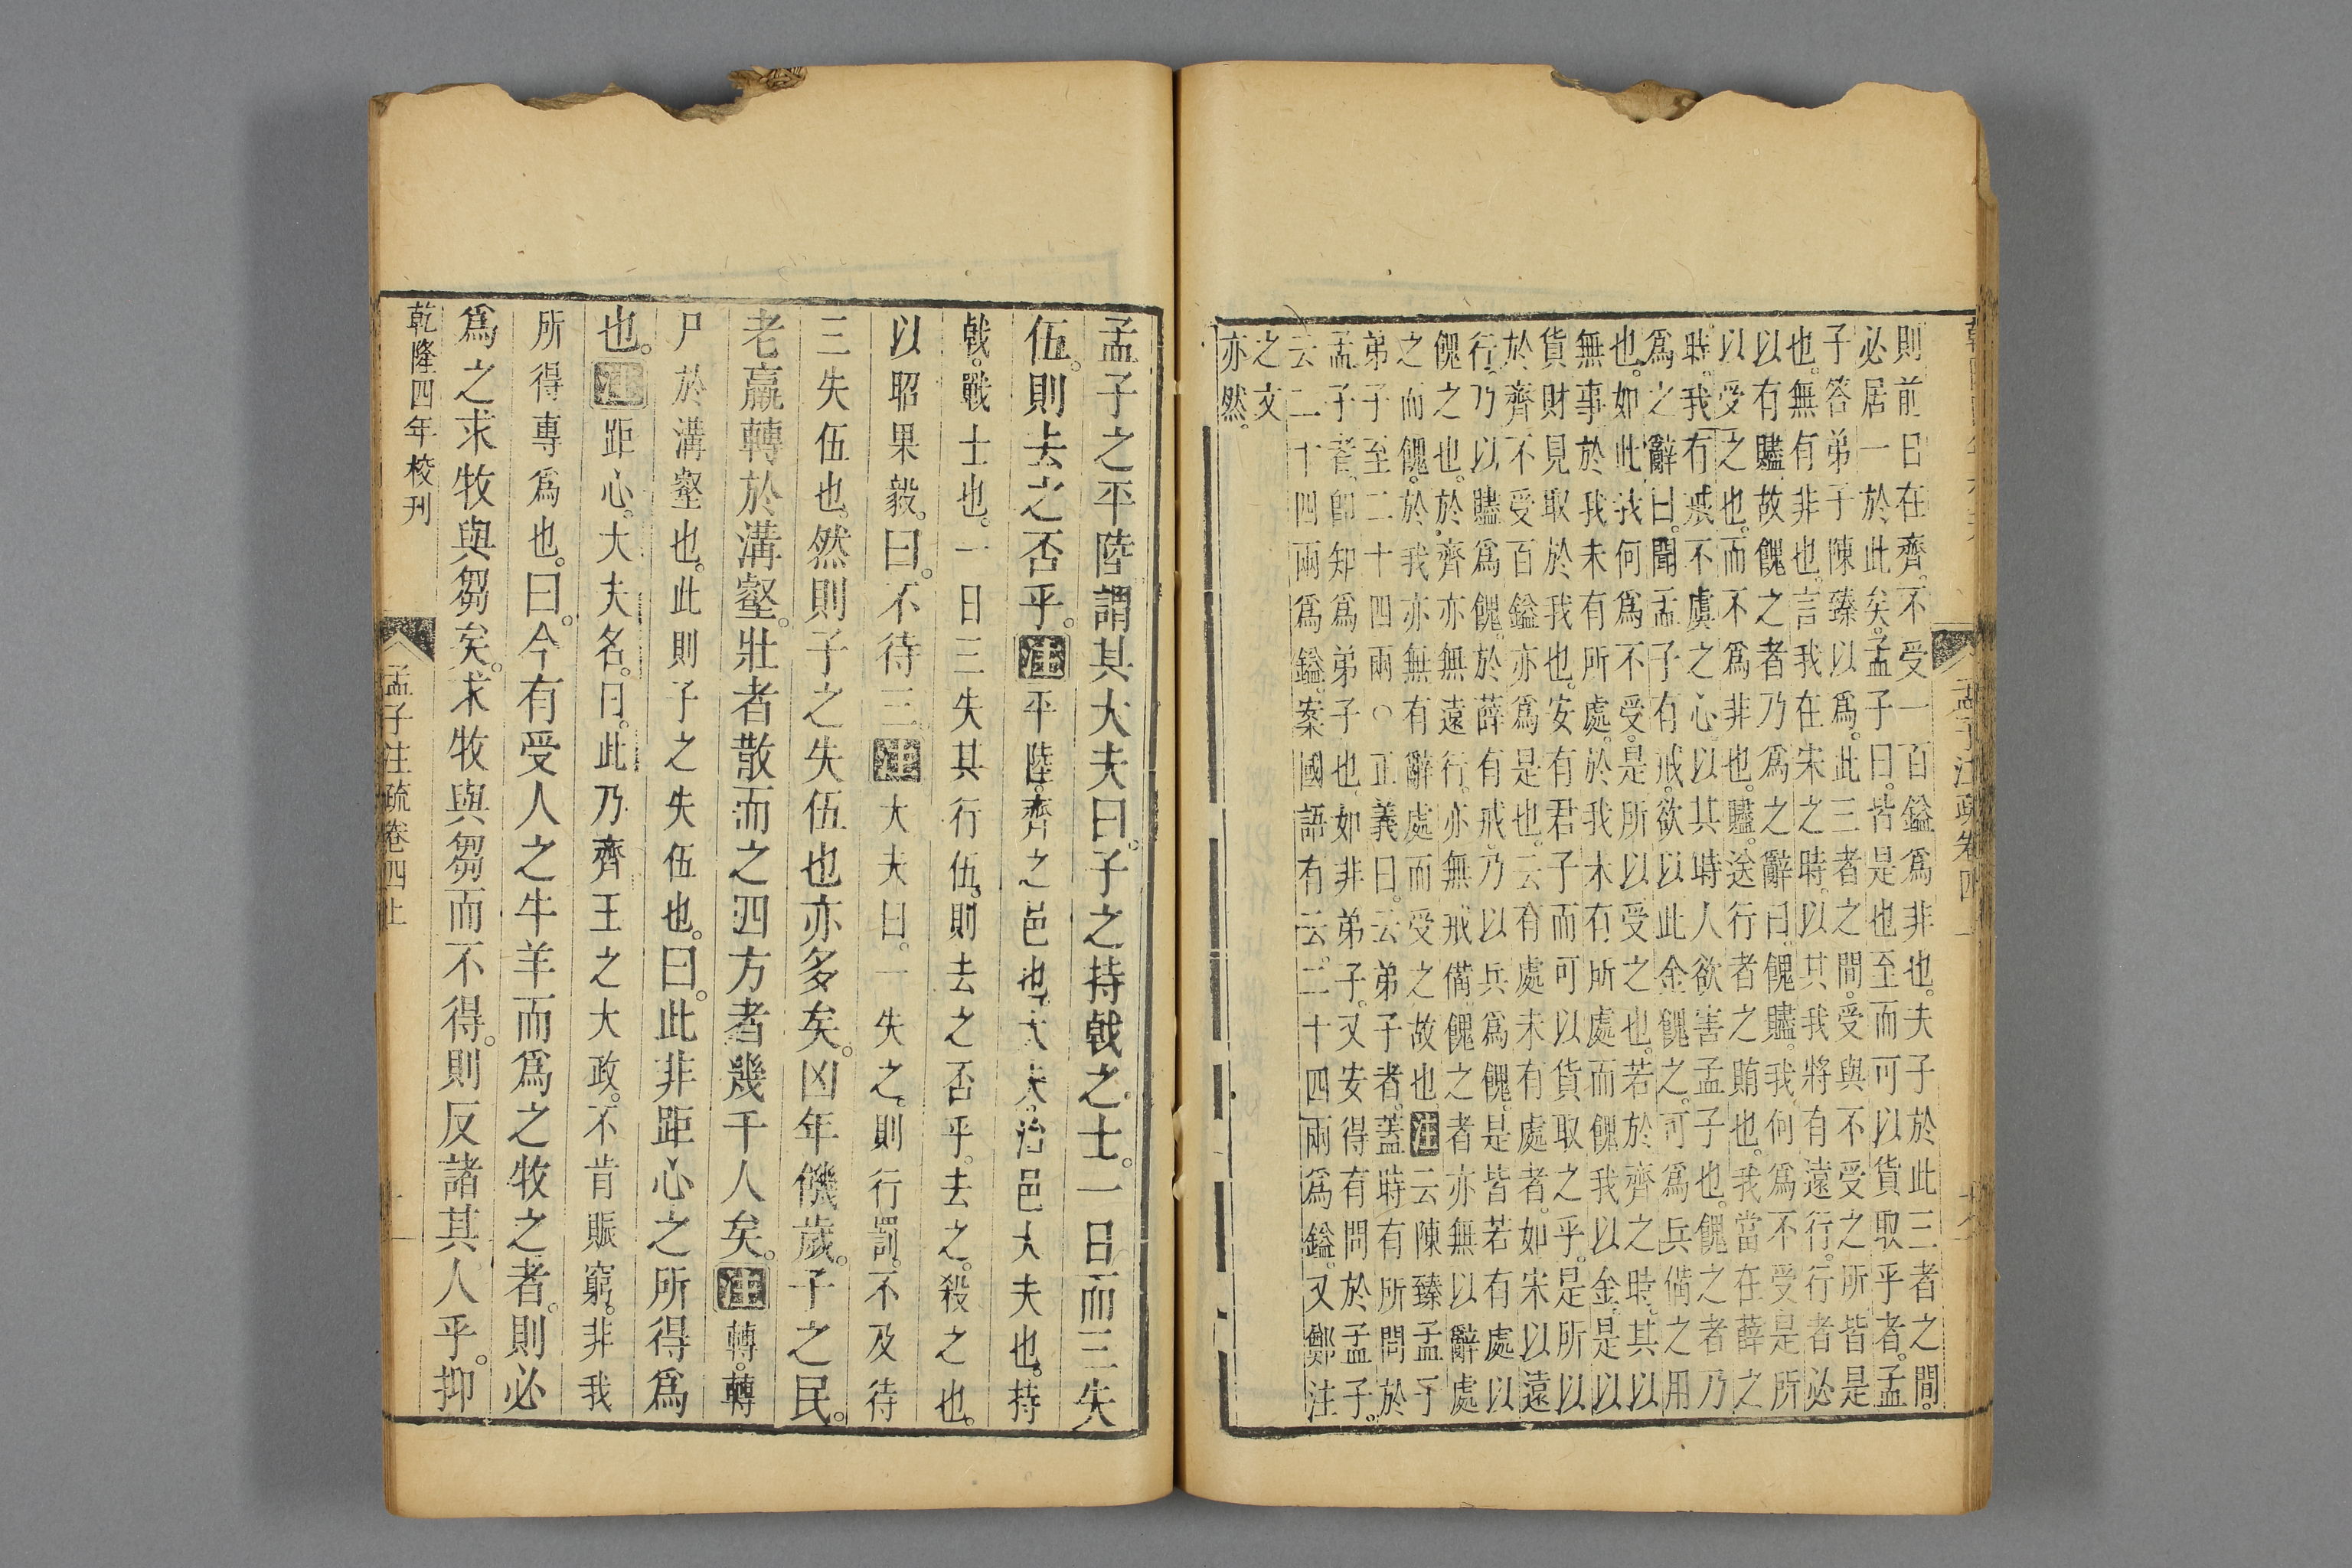 則前日在齊。不受一百鎰爲非也。夫子於此三者之間。
必居一於此矣。孟子曰。皆是也至而可以貨取乎者。孟
子答弟子陳臻以爲。此三者之間。受與不受之所皆是
也。無有非也。言我在宋之時。以其我將有遠行。行者必
以有贐。故餽之者乃爲之辭曰。餽贐。我何爲不受。是所
以受之也。而不爲非也。贐。送行者之賄也。我當在薛之
時。我有戒不虞之心。以其時人欲害孟子也。餽之者乃
爲之辭曰。聞孟子有戒。欲以此金餽之。可爲兵備之用
也。如此。我何爲不受。是所以受之也。若於齊之時。其以
無事於我未有所處。於我未有所處而餽我以金。是以
貨財見取於我也。安有君子而可以貨取之乎。是所以
於齊不受百鎰。亦爲是也。云有處未有處者。如宋以遠
行。乃以贐爲餽。於薛有戒。乃以兵爲餽。是皆若有處以
餽之也。於齊亦無遠行。亦無戒備餽之者亦無以辭處
之而餽。於我亦無有辭處而受之故也注云陳臻孟子
弟子至二十四兩〇正義曰。云弟子者。蓋時有所問於
孟子者。卽知爲弟子也如非弟子。又安得有問於孟子。
云二十四兩爲鎰。案國語有云。二十四兩爲鎰。又鄭注
之文
亦然。
孟子之平陸謂其大夫曰。子之持戟之士。一日而三失
伍。則去之否乎。注平陸。齊之邑也。大夫。治邑大夫也。持
戟。戰士也。一日三失其行伍。則去之否乎。去之。殺之也。
以昭果毅。曰。不待三注大夫曰。一失之。則行罰。不及待
三失伍也。然則子之失伍也亦多矣。凶年饑歲。子之民。
老羸轉於溝壑。壯者散而之四方者幾千人矣。注轉。轉
尸於溝壑也。此則子之失伍也。曰。此非距心之所得爲
也。注距心。大夫名。曰。此乃齊王之大政。不肯賑窮。非我
所得專爲也。曰。今有受人之牛羊而爲之牧之者。則必
爲之求牧與芻矣。求牧與芻而不得。則反諸其人乎。抑
乾隆四年校刊
孟子注疏卷四上